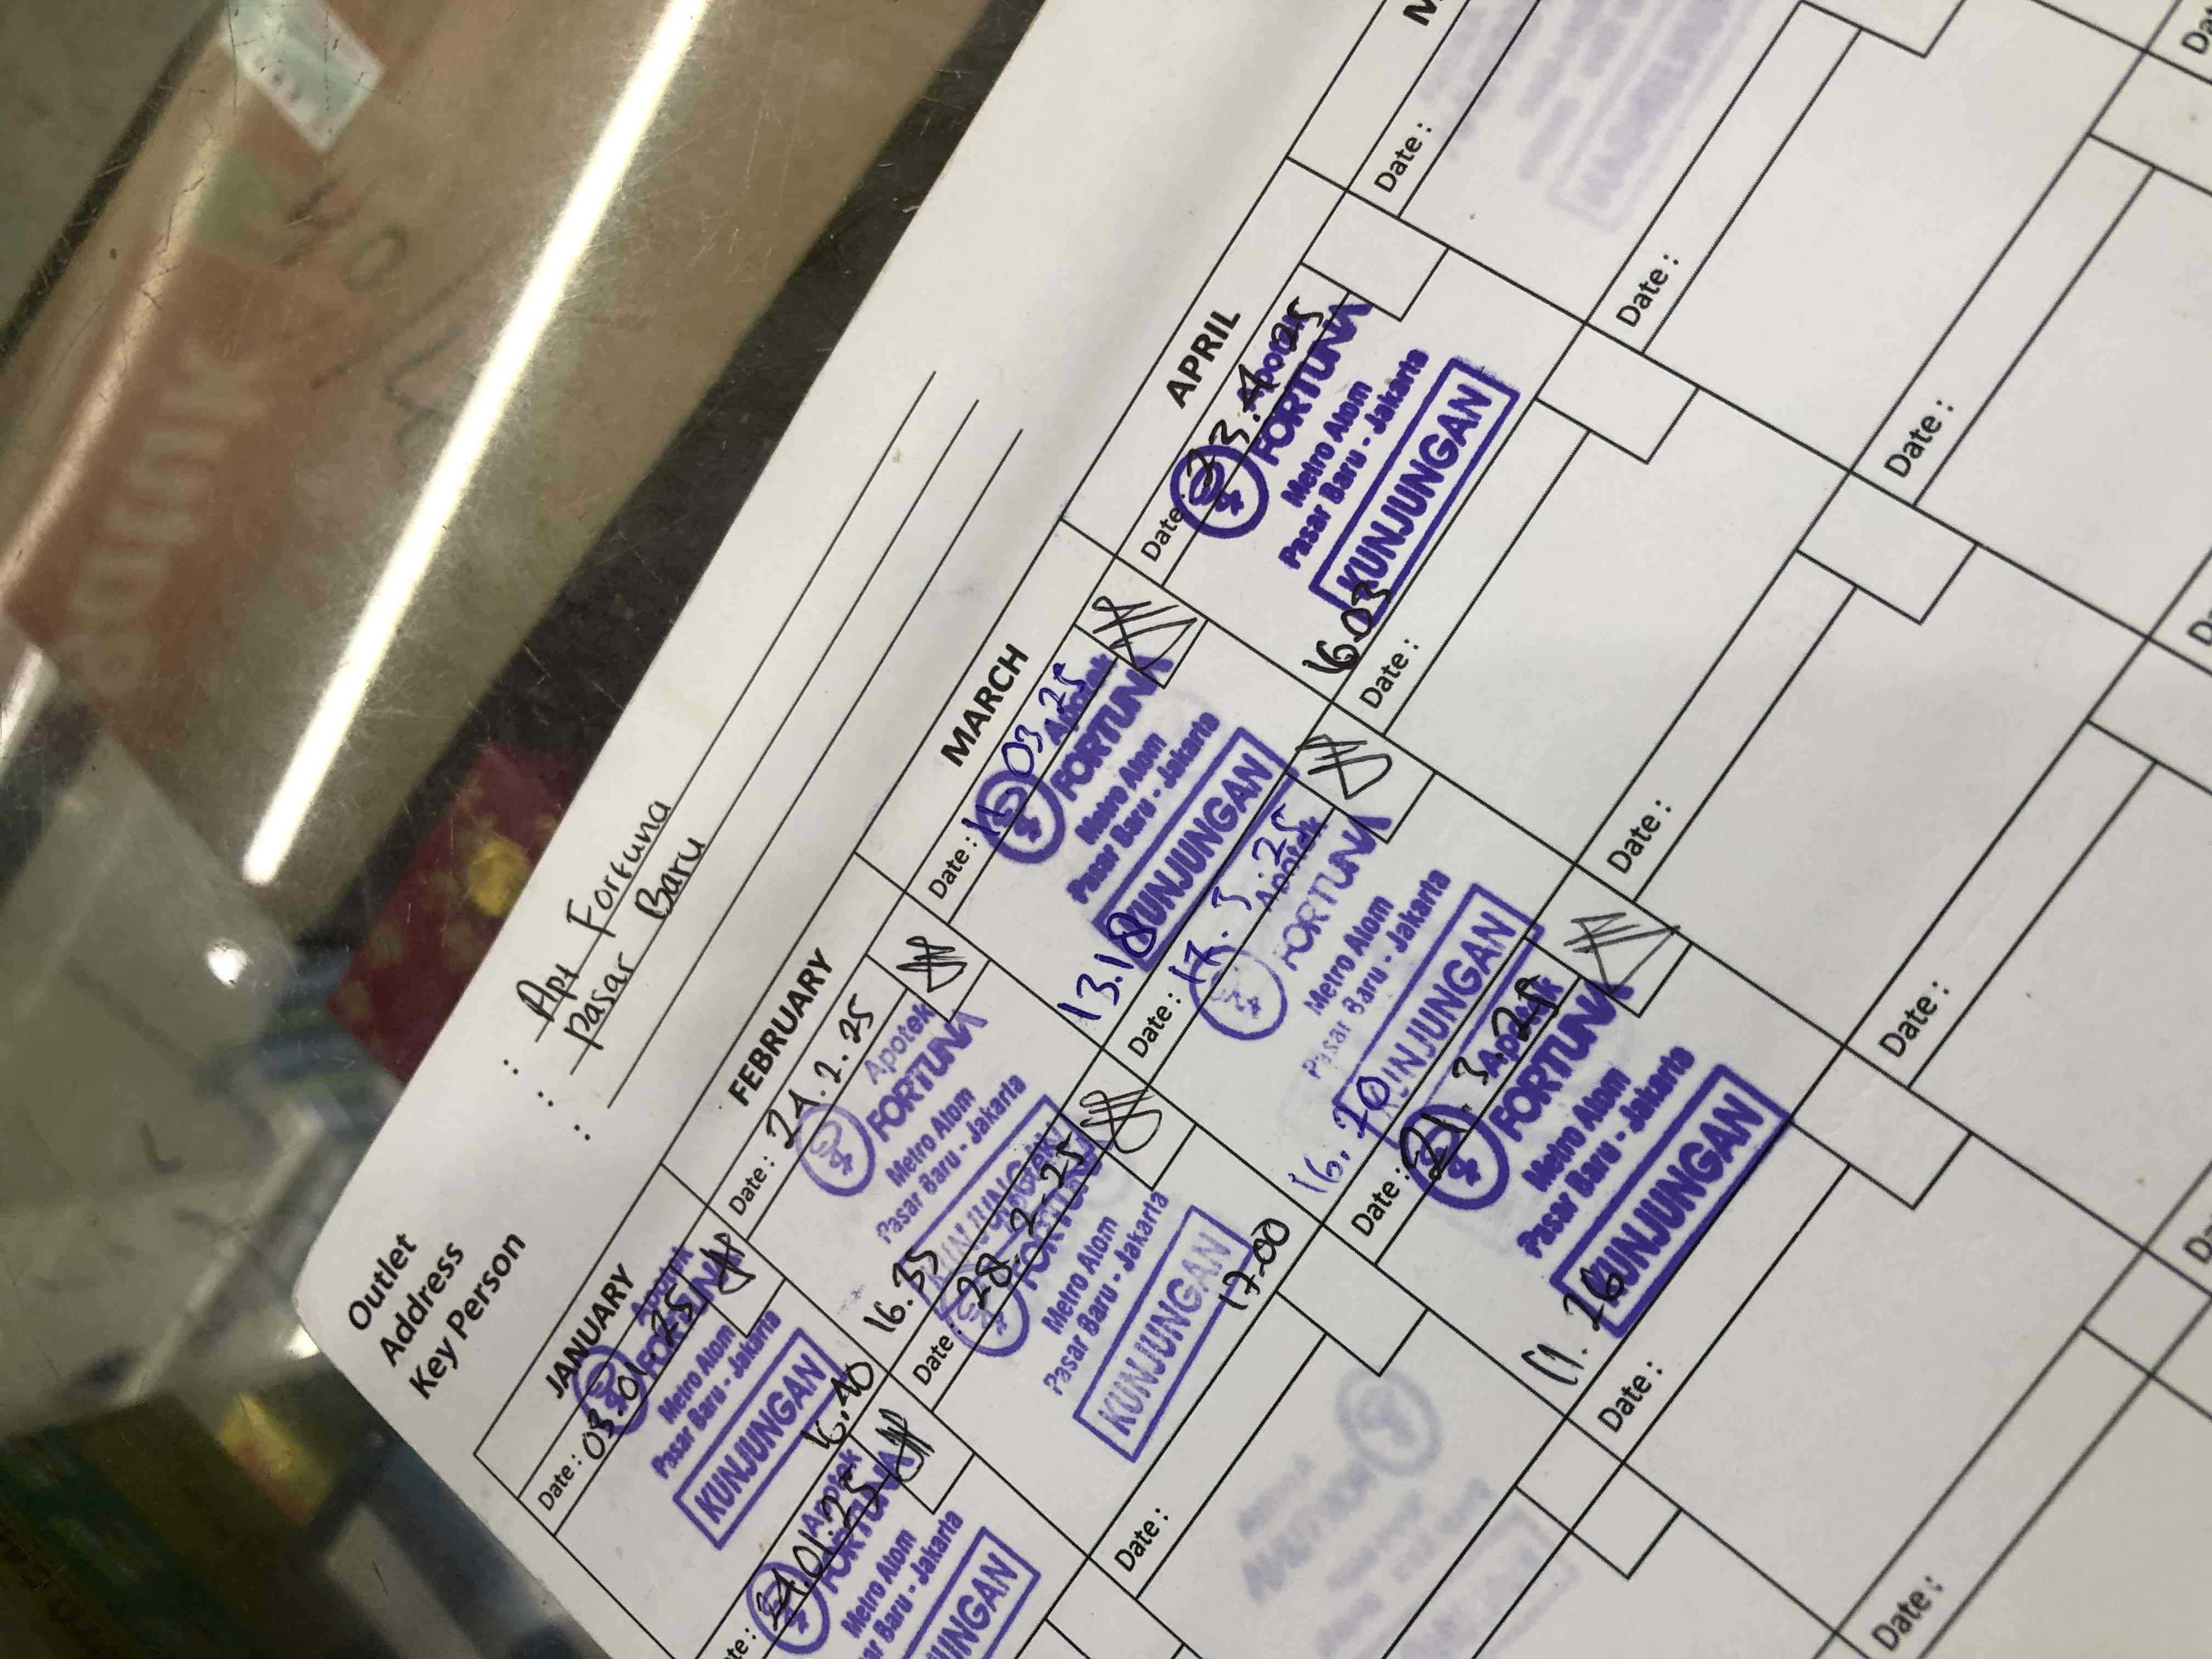 Outlet : Apt Fortuna
Address : Pasar Baru
Key Person :
JANUARY
Date : 03.01.25
Apotek
FORTUNA
Metro Atom
Pasar Baru - Jakarta
KUNJUNGAN
16.40
24.01.25
Apotek
FORTUNA
Metro Atom
Pasar Baru - Jakarta
KUNJUNGAN
FEBRUARY
Date : 24.2.25
Apotek
FORTUNA
Metro Atom
Pasar Baru - Jakarta
KUNJUNGAN
16.35
Date : 28-2-25
FORTUNA
Metro Atom
Pasar Baru - Jakarta
KUNJUNGAN
17.00
Date :
MARCH
Date : 11 03.25
Apotek
FORTUNA
Metro Atom
Pasar Baru - Jakarta
KUNJUNGAN
13.18
Date : 17.3.25
Apotek
FORTUNA
Metro Atom
Pasar Baru - Jakarta
KUNJUNGAN
16.20
Date : 21.3.25
Apotek
FORTUNA
Metro Atom
Pasar Baru - Jakarta
KUNJUNGAN
11.26
Date :
Date :
APRIL
Date : 23.4.25
Apotek
FORTUNA
Metro Atom
Pasar Baru - Jakarta
KUNJUNGAN
16.03
Date :
Date :
Date :
Date :
Date :
Date :